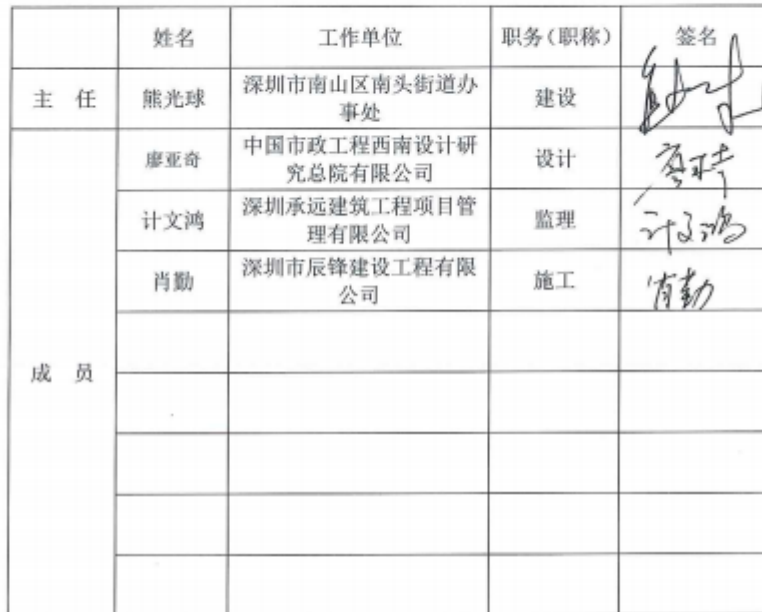 姓名 工作单位 职务(职称) 签名
主 任 熊光球 深圳市南山区南头街道办事处 建设
成 员 廖亚奇 中国市政工程西南设计研究总院有限公司 设计 廖亚奇
计文鸿 深圳承远建筑工程项目管理有限公司 监理 计文鸿
肖勤 深圳市辰锋建设工程有限公司 施工 肖勤